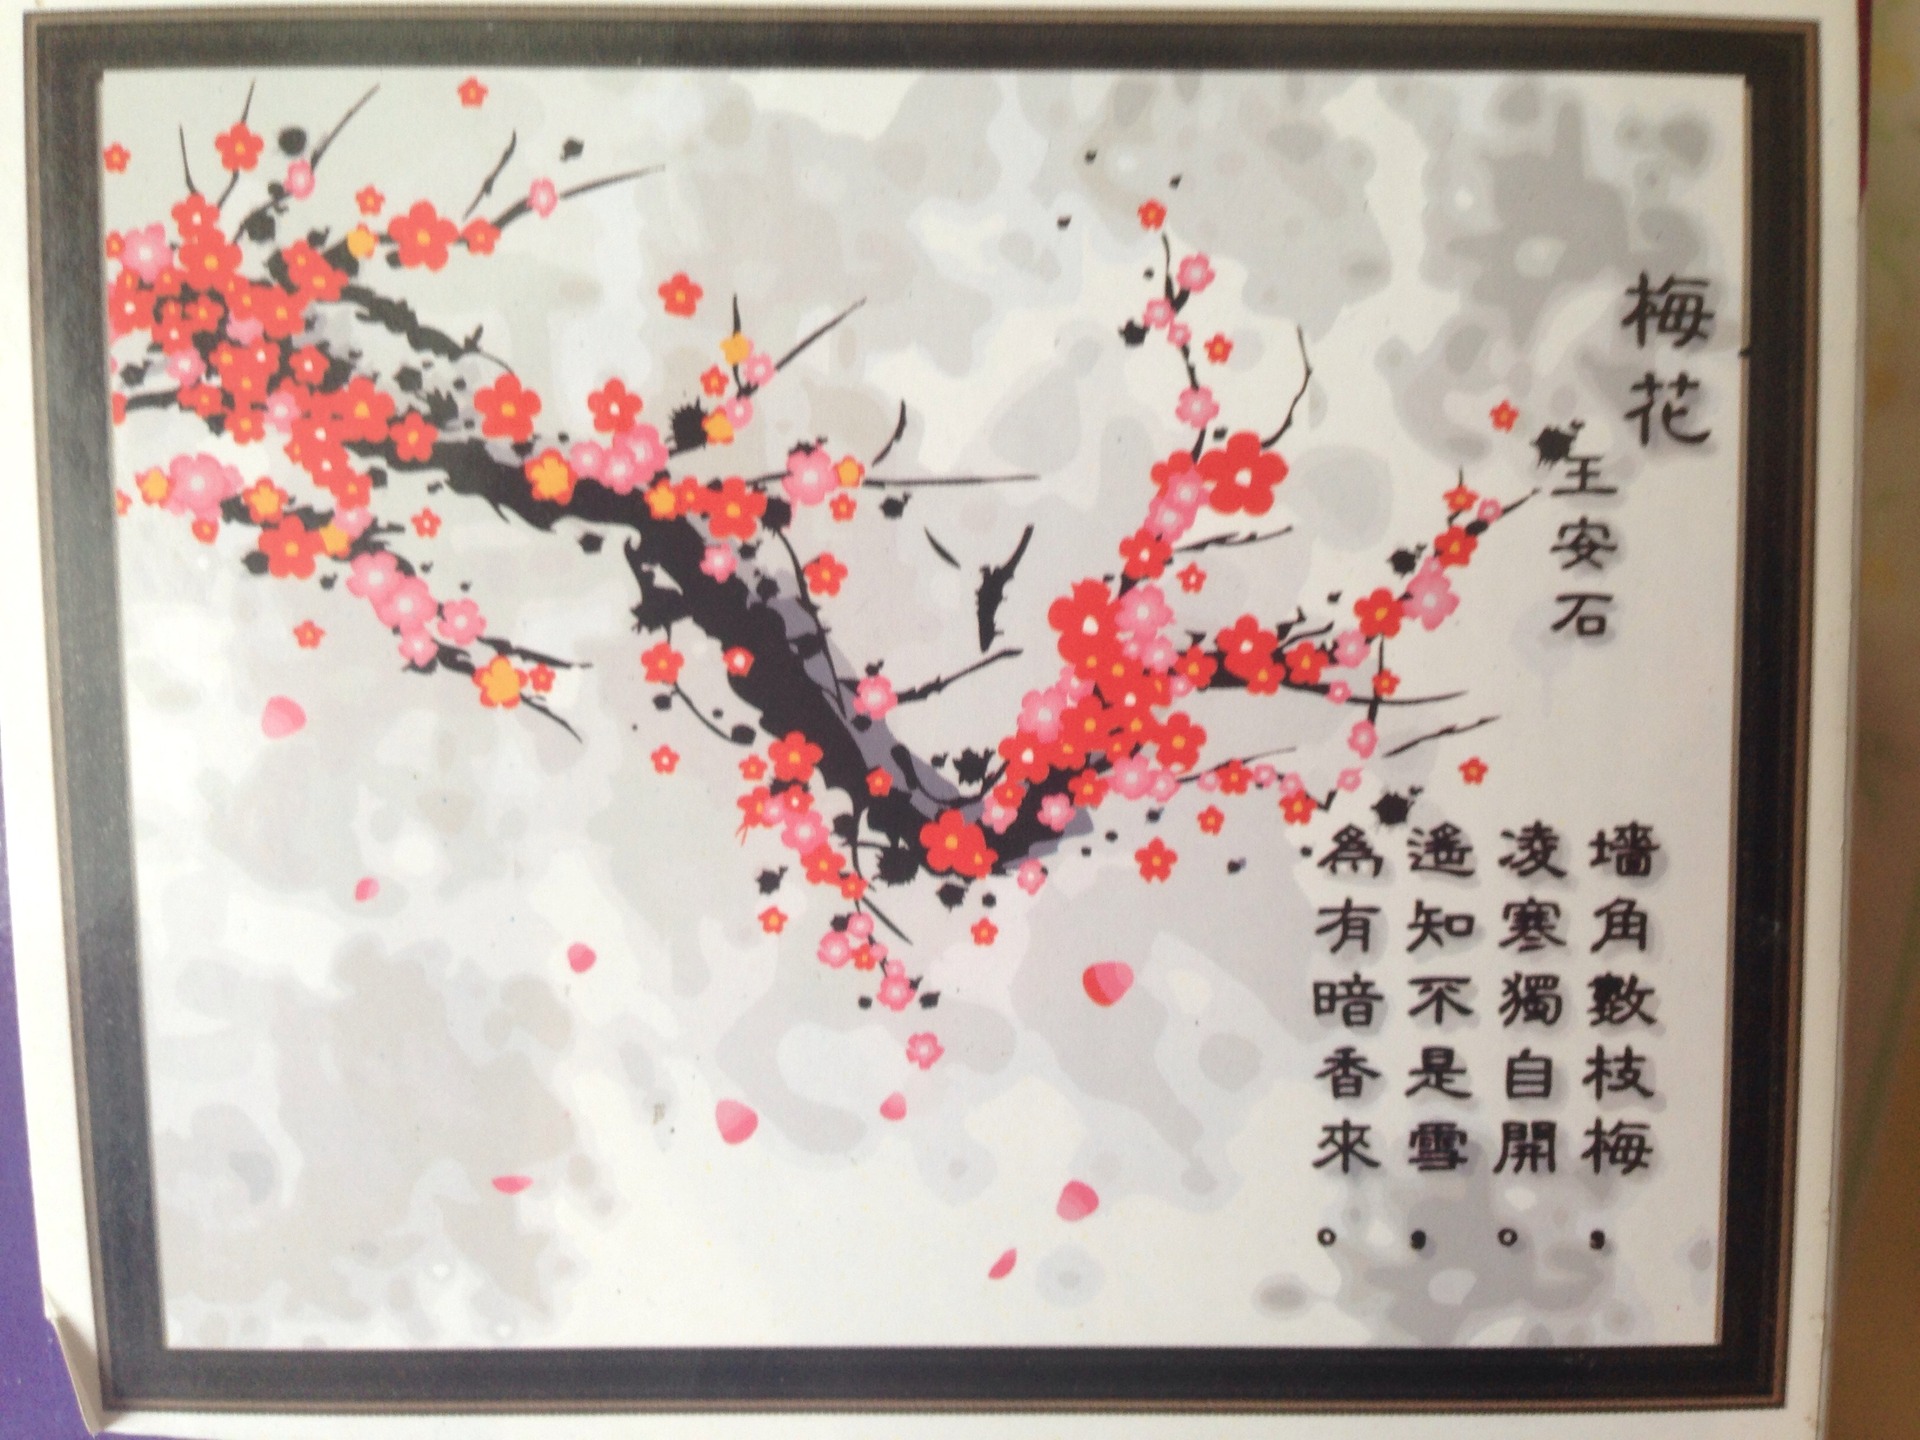 梅花
王安石
墻角數枝梅，
凌寒獨自開。
遙知不是雪，
為有暗香來。